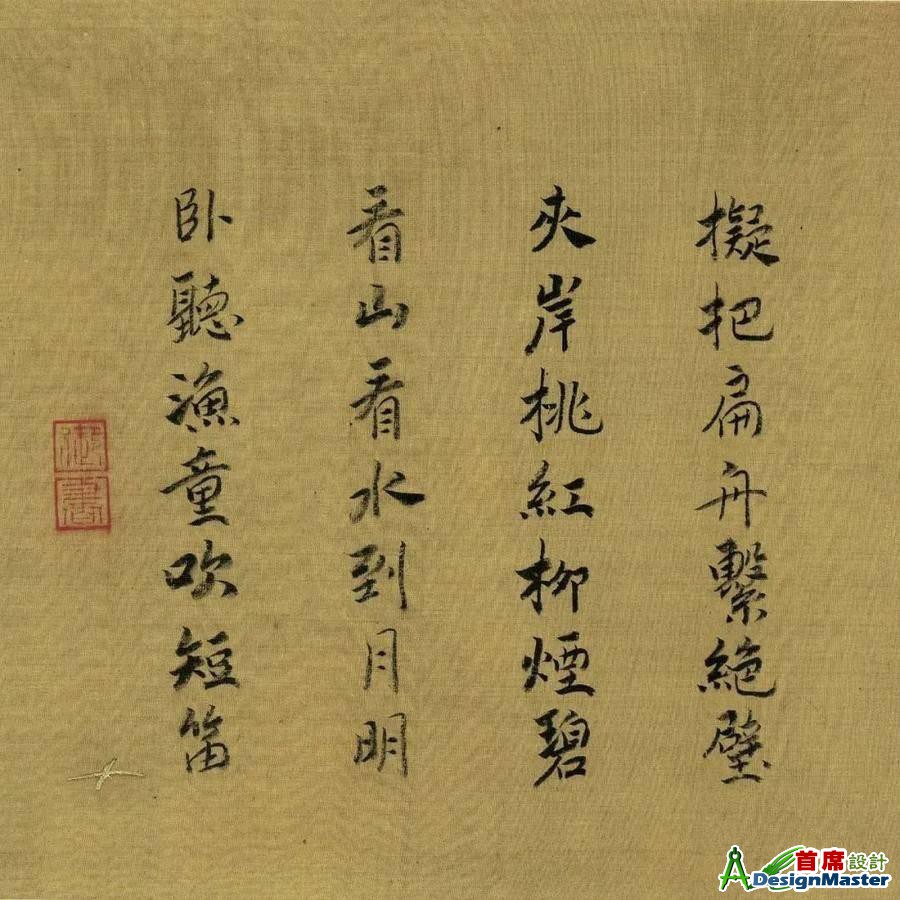 擬把扁舟繫絶壁
夾岸桃紅柳煙碧
看山看水到月明
卧聽漁童吹短笛
御書
首席設計
DesignMaster